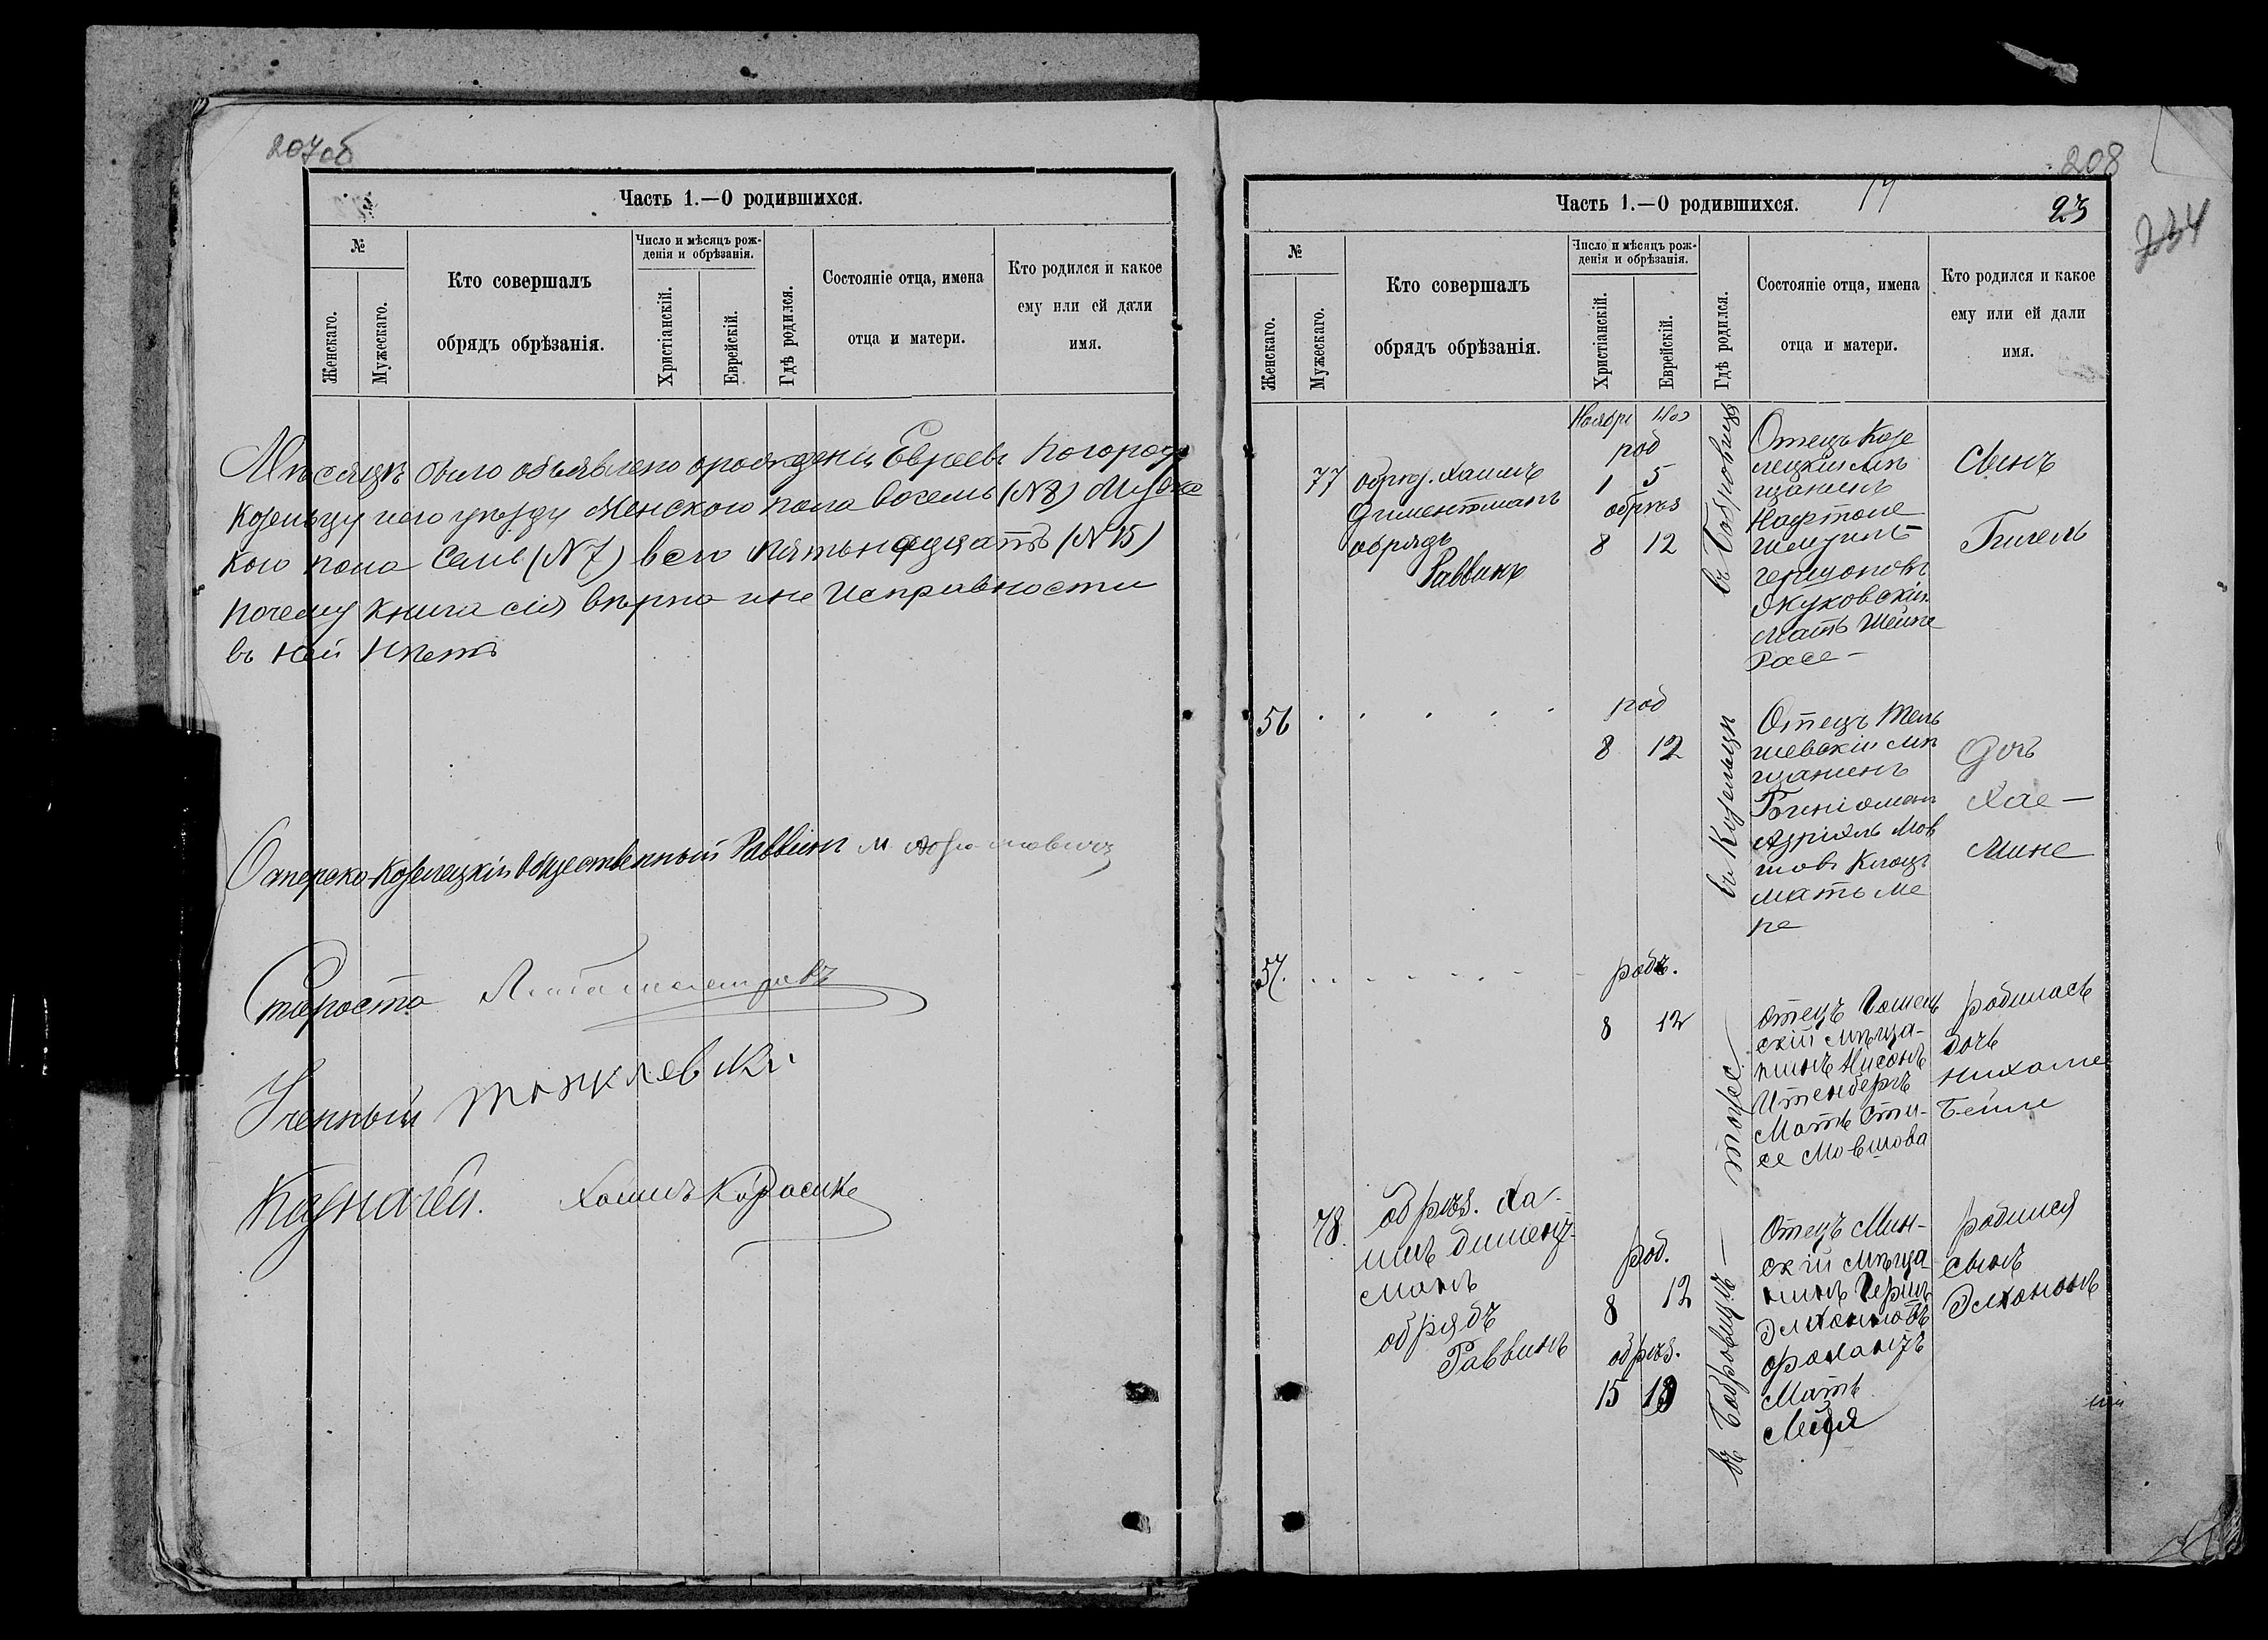 207об
Часть 1.—О родившихся.
№
Женскаго.
Мужескаго.
Кто совершалъ
обрядъ обрѣзанія.
Число и мѣсяцъ рож-
денія и обрѣзанія.
Христіанскій.
Еврейскій.
Гдѣ родился.
Состояніе отца, имена
отца и матери.
Кто родился и какое
ему или ей дали
имя.
Мѣсяцѣ было объявлено орожденіи Евреевъ По городу
Козельцу и его уѣзду Женского пола восемь (N 8) Мужес
кого пола Семь (N 7) всего пятьнадцать (N 15)
почему книга сія вѣрна и не Исправности
въ ней Нѣтъ
Остерско-Козелецкій Общественный Раввинъ М.
Староста
Ученный
Казначей. Хаимъ Карасикъ
208
Часть 1.—О родившихся.
14
23
234
№
Женскаго.
Мужескаго.
Кто совершалъ
обрядъ обрѣзанія.
Число и мѣсяцъ рож-
денія и обрѣзанія.
Христіанскій.
Еврейскій.
Гдѣ родился.
Состояніе отца, имена
отца и матери.
Кто родился и какое
ему или ей дали
имя.
Ноябрь
77
обрѣз. Хаимъ
Диментманъ
обрядъ
Раввинъ
род
1 5
обрѣз
8 12
въ Бобровицѣ
Отецъ Козе
лецкій мѣ
щанинъ
Нафтоле
Шмуилъ
Гершоновъ
Жуковскій
мать Шейне
Расе—
Сынъ
Гилель
56
род
8 12
въ Козельцѣ
Отецъ Тель
шевскій мѣ
щанинъ
Азріиль Мов
шовъ Клоцъ
мать Ме
ре
Дочь
Хае—
Мине
57.
родъ.
8 12
тоже
Отецъ Гомель
скій мѣща-
нинъ Нисонъ
Итенбергъ
Мать Сти-
се Мовшова
родилась
дочь
Нихаме
Бейле
78.
обрѣз. Ха-
имъ димент-
манъ
обрядъ
Раввинъ
род.
8 12
обрѣз.
15 19
въ Бобровицѣ—
Отецъ Мин-
скій мѣща
нинъ Гершъ
Элхоновъ
Мать
Лейя
родился
сынъ
Элхононъ